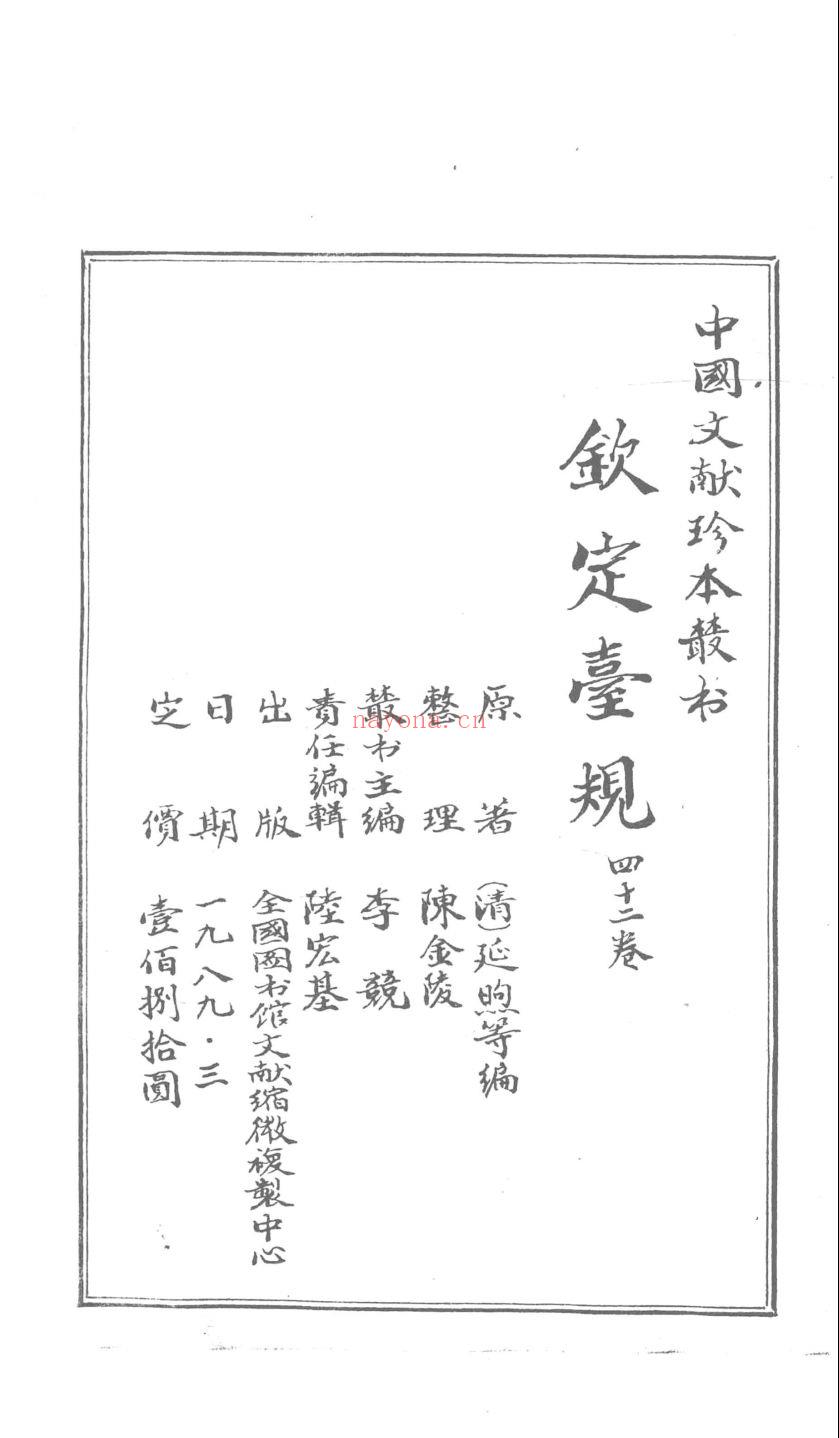 中國文献珍本叢书
欽定臺規 四十二卷
原著 (清)延煦等編
整理 陳金陵
叢书主編 李競
責任編輯 陸宏基
出版 全國图书馆文献縮微複製中心
日期 一九八九·三
定價 壹佰捌拾圓
nayona.cn